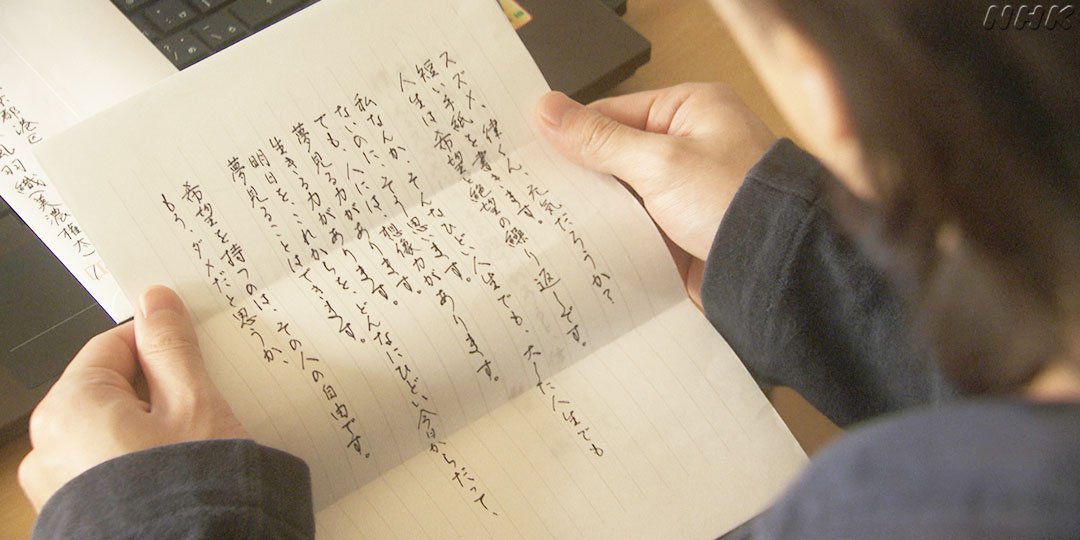 スズメ、律くん、元気だろうか?
短い手紙を書きます。
人生は希望と絶望の繰り返しです。
私なんか、そんなひどい人生でも、大した人生でも
ないのに、そう思います。
でも、人には想像力があります。
夢見る力があります。
生きる力があります。どんなにひどい今日からだって、
明日を、これからを、
夢見ることはできます。
希望を持つのは、その人の自由です。
もう、ダメだと思うか、
都港区
羽織(美濃権太)
NHK